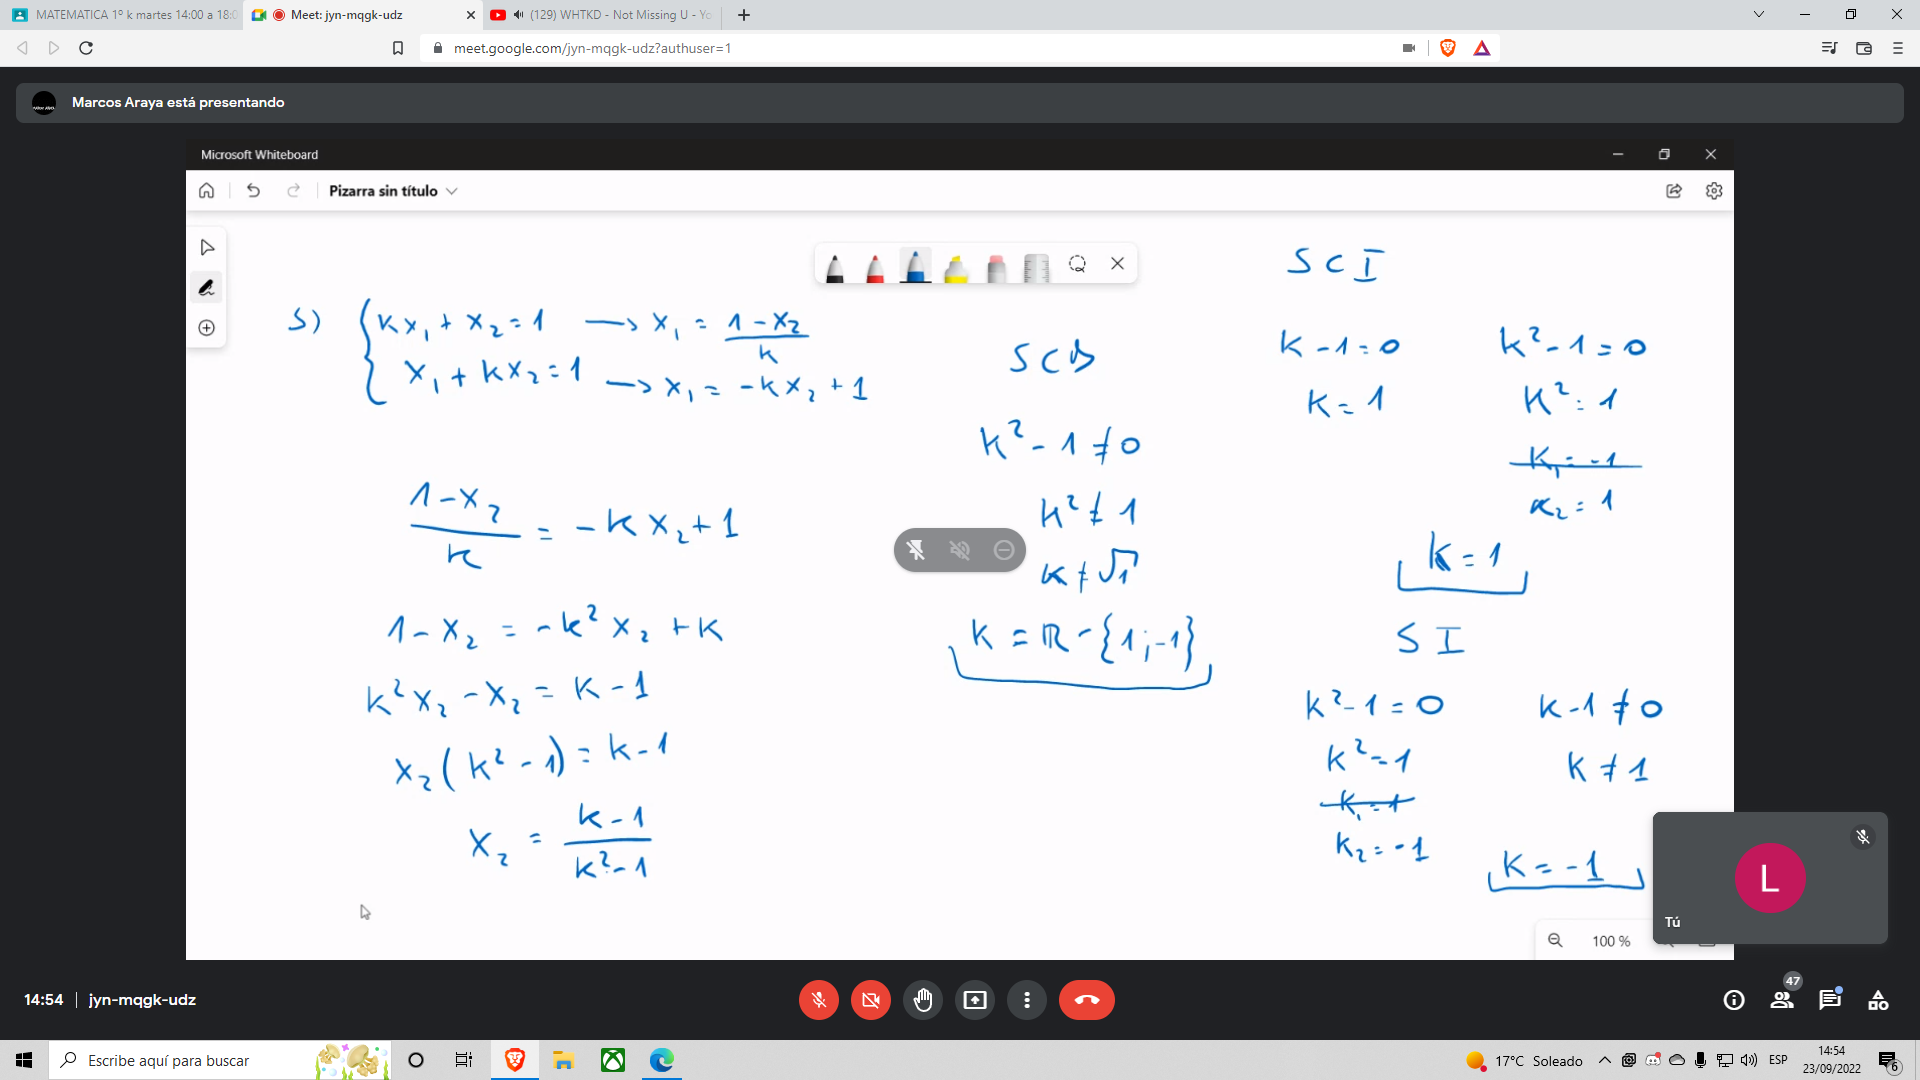 MATEMATICA 1º k martes 14:00 a 18:0
Meet: jyn-mqgk-udz
(129) WHTKD - Not Missing U - Yo
meet.google.com/jyn-mqgk-udz?authuser=1
Marcos Araya está presentando
Microsoft Whiteboard
Pizarra sin título
5) { kx₁ + x₂ = 1 → x₁ = (1 - x₂)/k
x₁ + kx₂ = 1 → x₁ = -kx₂ + 1
(1 - x₂)/k = -kx₂ + 1
1 - x₂ = -k²x₂ + k
k²x₂ - x₂ = k - 1
x₂(k² - 1) = k - 1
x₂ = (k - 1)/(k² - 1)
SCD
k² - 1 ≠ 0
k² ≠ 1
k ≠ √1
k = ℝ - {1; -1}
SCI
k - 1 = 0
k = 1
k² - 1 = 0
k² = 1
k₁ = -1
k₂ = 1
k = 1
SI
k² - 1 = 0
k² = 1
k₁ = 1
k₂ = -1
k - 1 ≠ 0
k ≠ 1
k = -1
100 %
L
Tú
14:54 | jyn-mqgk-udz
47
Escribe aquí para buscar
17°C Soleado
ESP
14:54
23/09/2022
6